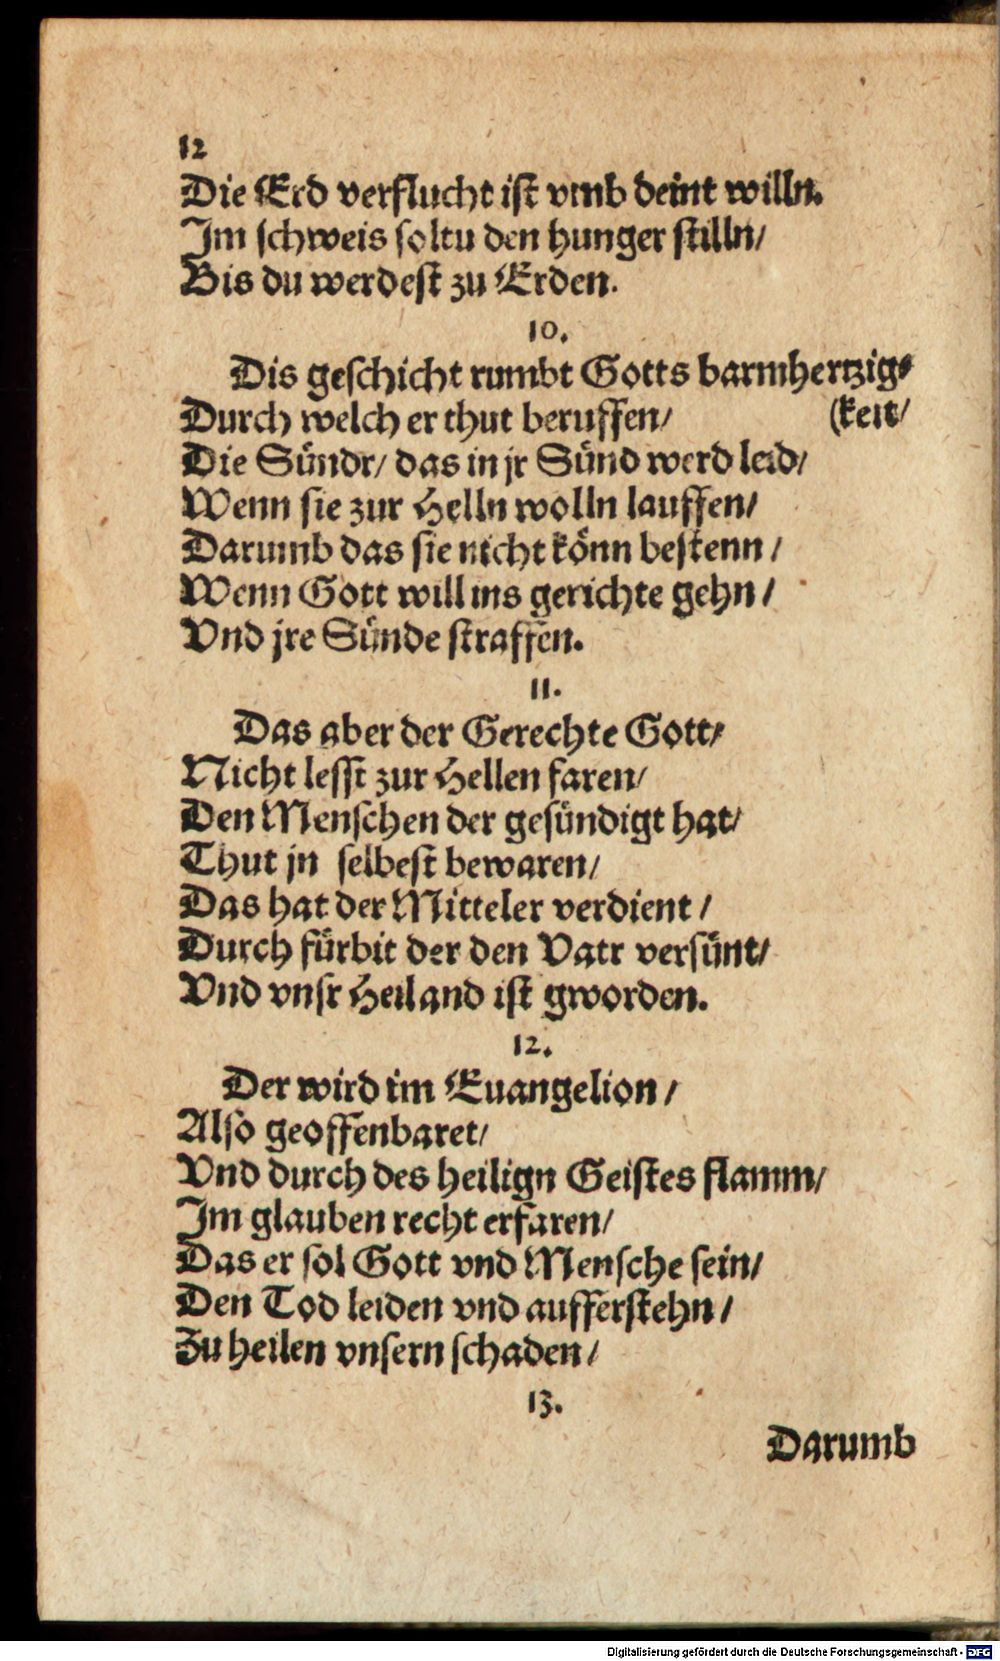 12
Die Erd verflucht ist vmb deint willn.
Im schweis soltu den hunger stilln/
Bis du werdest zu Erden.
10.
Dis geschicht rumbt Gotts barmhertzig⸗
Durch welch er thut beruffen/ (keit/
Die Sündr/ das in jr Sünd werd leid/
Wenn sie zur Helln wolln lauffen/
Darumb das sie nicht könn bestenn /
Wenn Gott will ins gerichte gehn /
Vnd jre Sünde straffen.
11.
Das aber der Gerechte Gott/
Nicht lesst zur Hellen faren/
Den Menschen der gesündigt hat/
Thut jn selbest bewaren/
Das hat der Mitteler verdient /
Durch fürbit der den Vatr versünt/
Vnd vnsr Heiland ist gworden.
12.
Der wird im Euangelion /
Also geoffenbaret/
Vnd durch des heilign Geistes flamm/
Im glauben recht erfaren/
Das er sol Gott vnd Mensche sein/
Den Tod leiden vnd aufferstehn /
Zu heilen vnsern schaden /
13.
Darumb
Digitalisierung gefördert durch die Deutsche Forschungsgemeinschaft - DFG